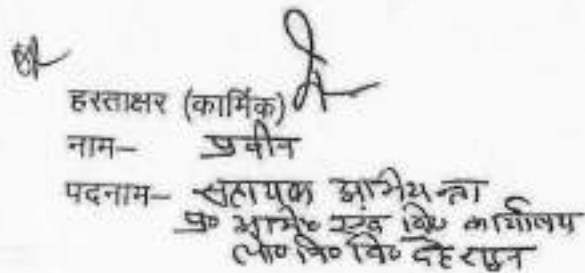 हस्ताक्षर (कार्मिक)
नाम– प्रवीन
पदनाम– सहायक अभियन्ता
प्र० अभि० एवं वि० कार्यालय
लो० नि० वि० देहरादून